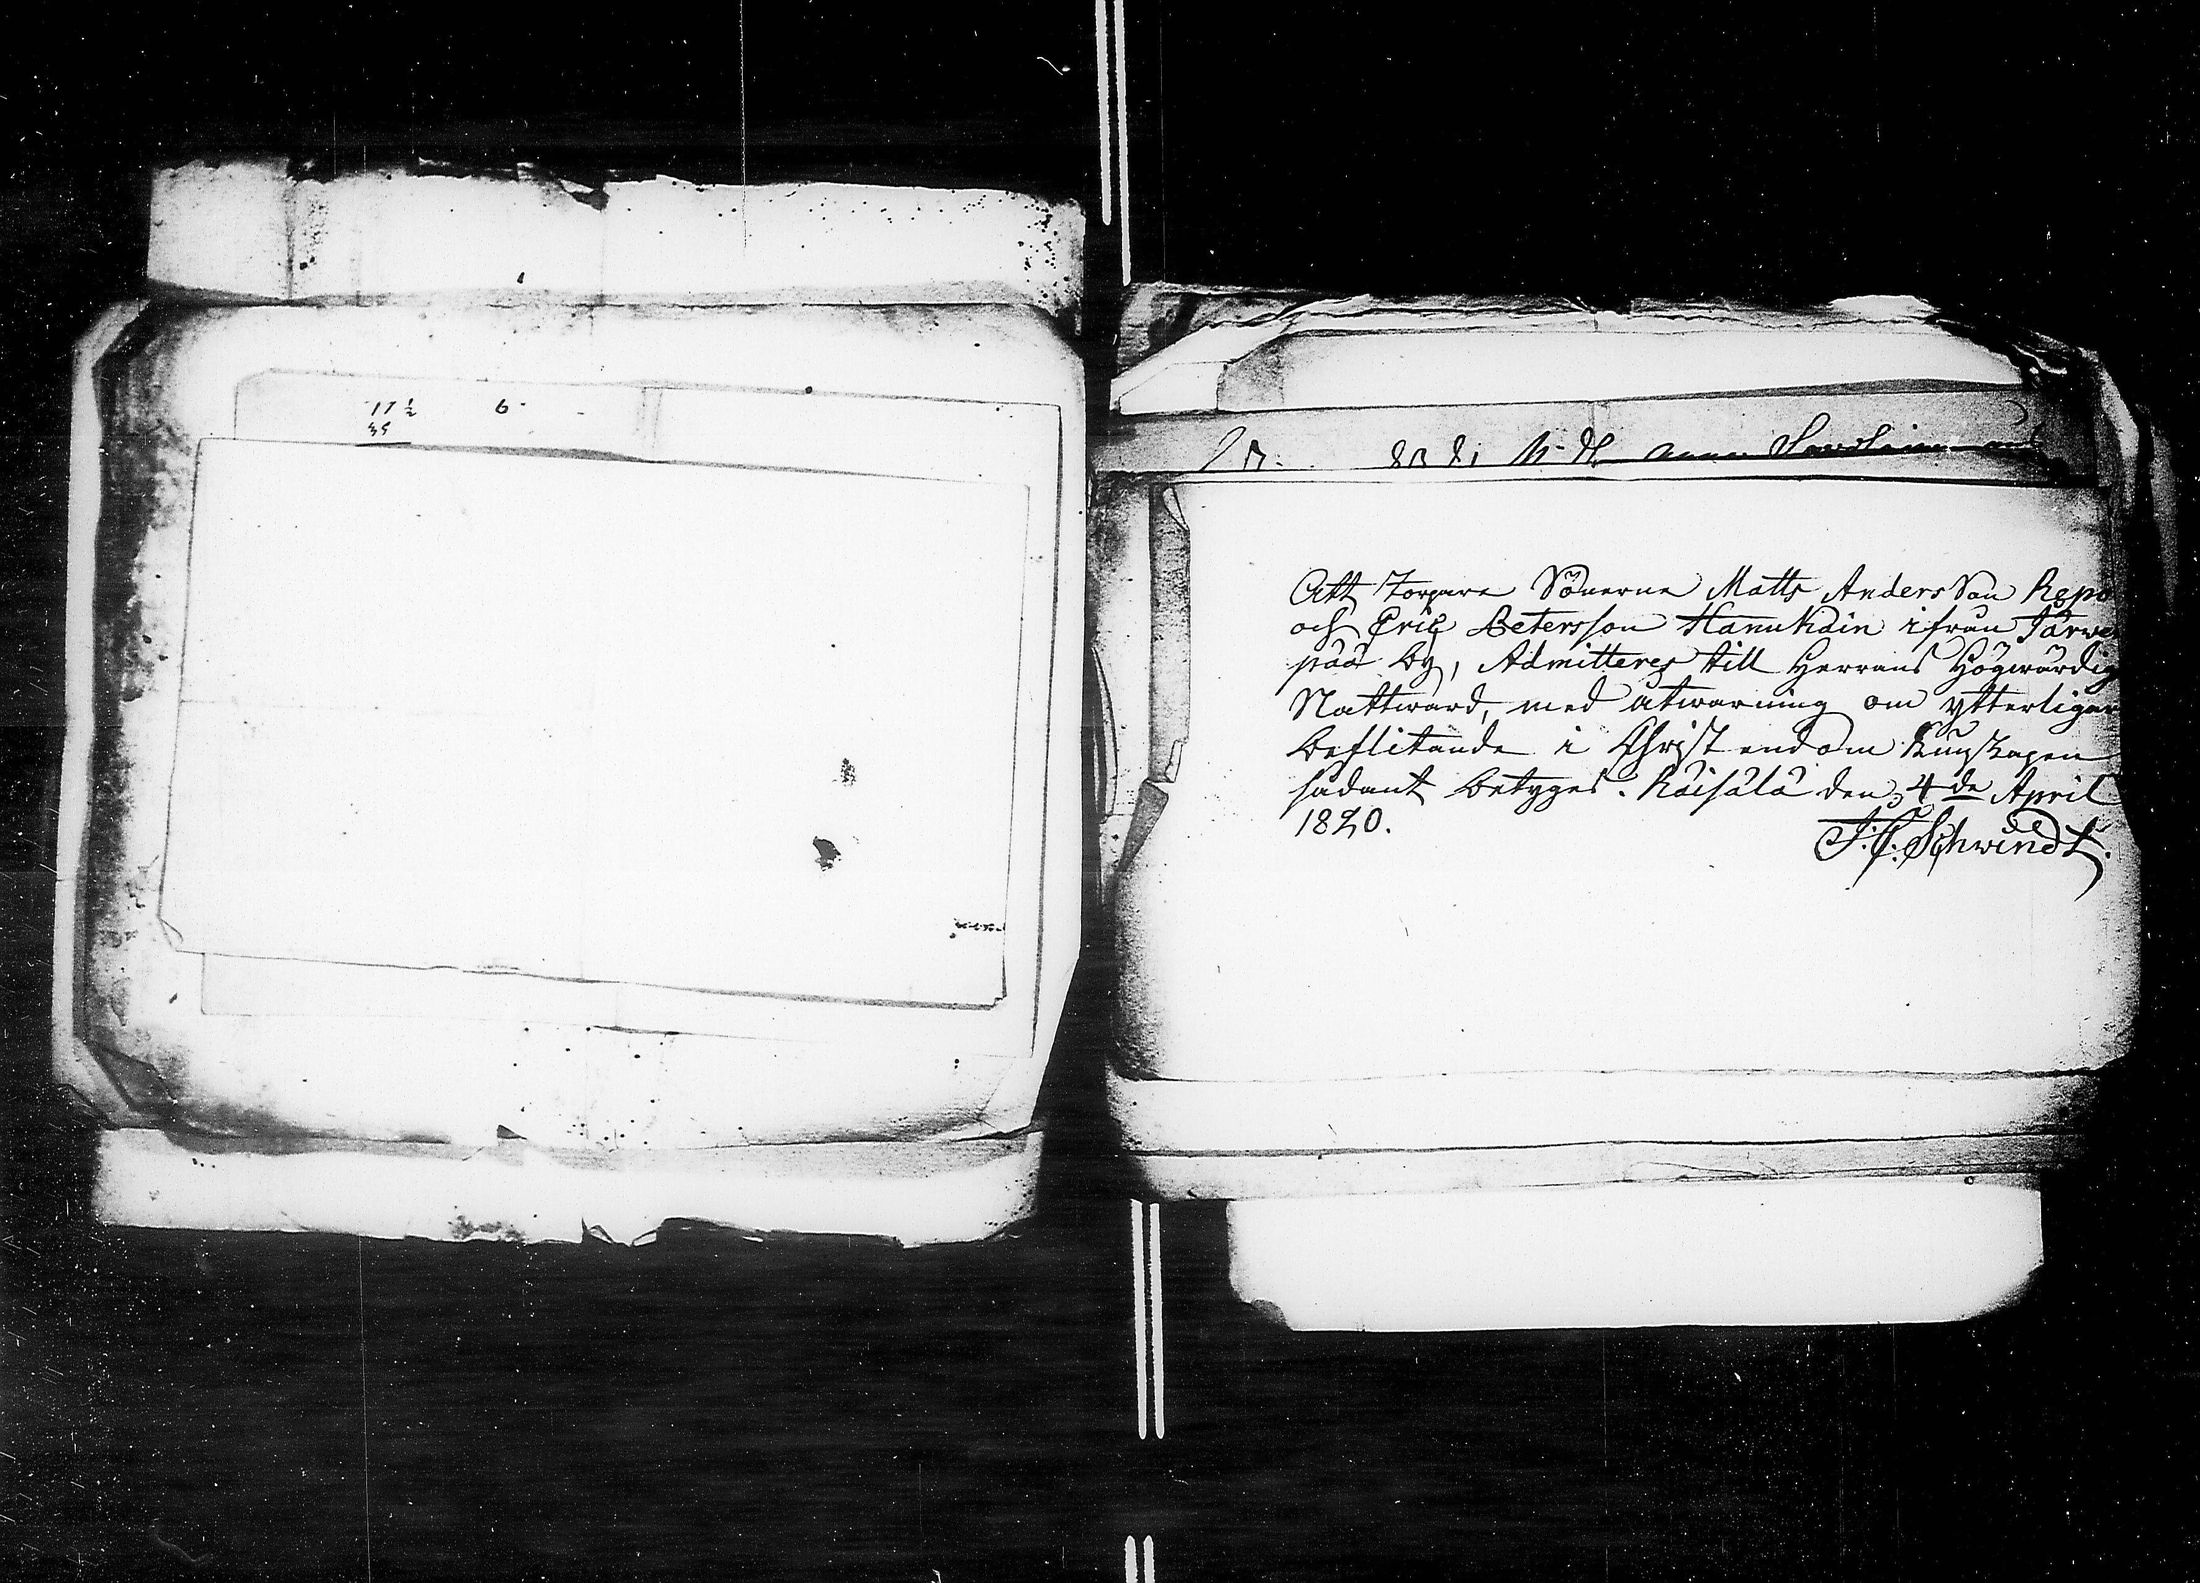 17 ½ 6
35
Att Torpare Sönerne Matts Andersson Repo
och Eric Petersson Hannukain ifrån Järwe
pää by, Admitteres till Herrans Högwördig
Nattward, med åtwarning om ytterligar
beflitande i Christendom Kunskapen
sådant betyges. Räisälä den 4de April
1820.
J. C. Schwindt.